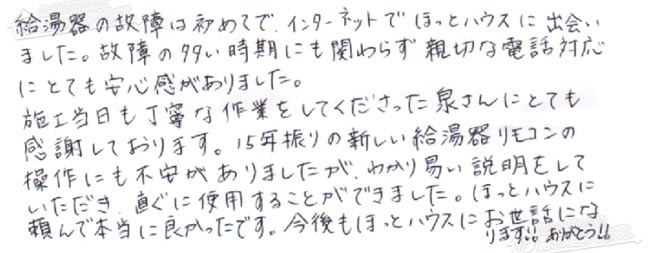 給湯器の故障は初めてで、インターネットでほっとハウスに出会い
ました。故障の多い時期にも関わらず親切な電話対応
にとても安心感がありました。
施工当日も丁寧な作業をしてくださった泉さんにとても
感謝しております。15年振りの新しい給湯器リモコンの
操作にも不安がありましたが、わかり易い説明をして
いただき、直ぐに使用することができました。ほっとハウスに
頼んで本当に良かったです。今後もほっとハウスにお世話にな
ります!! ありがとう!!